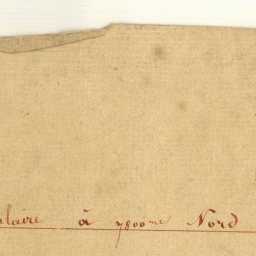 laire à 7800me Nord